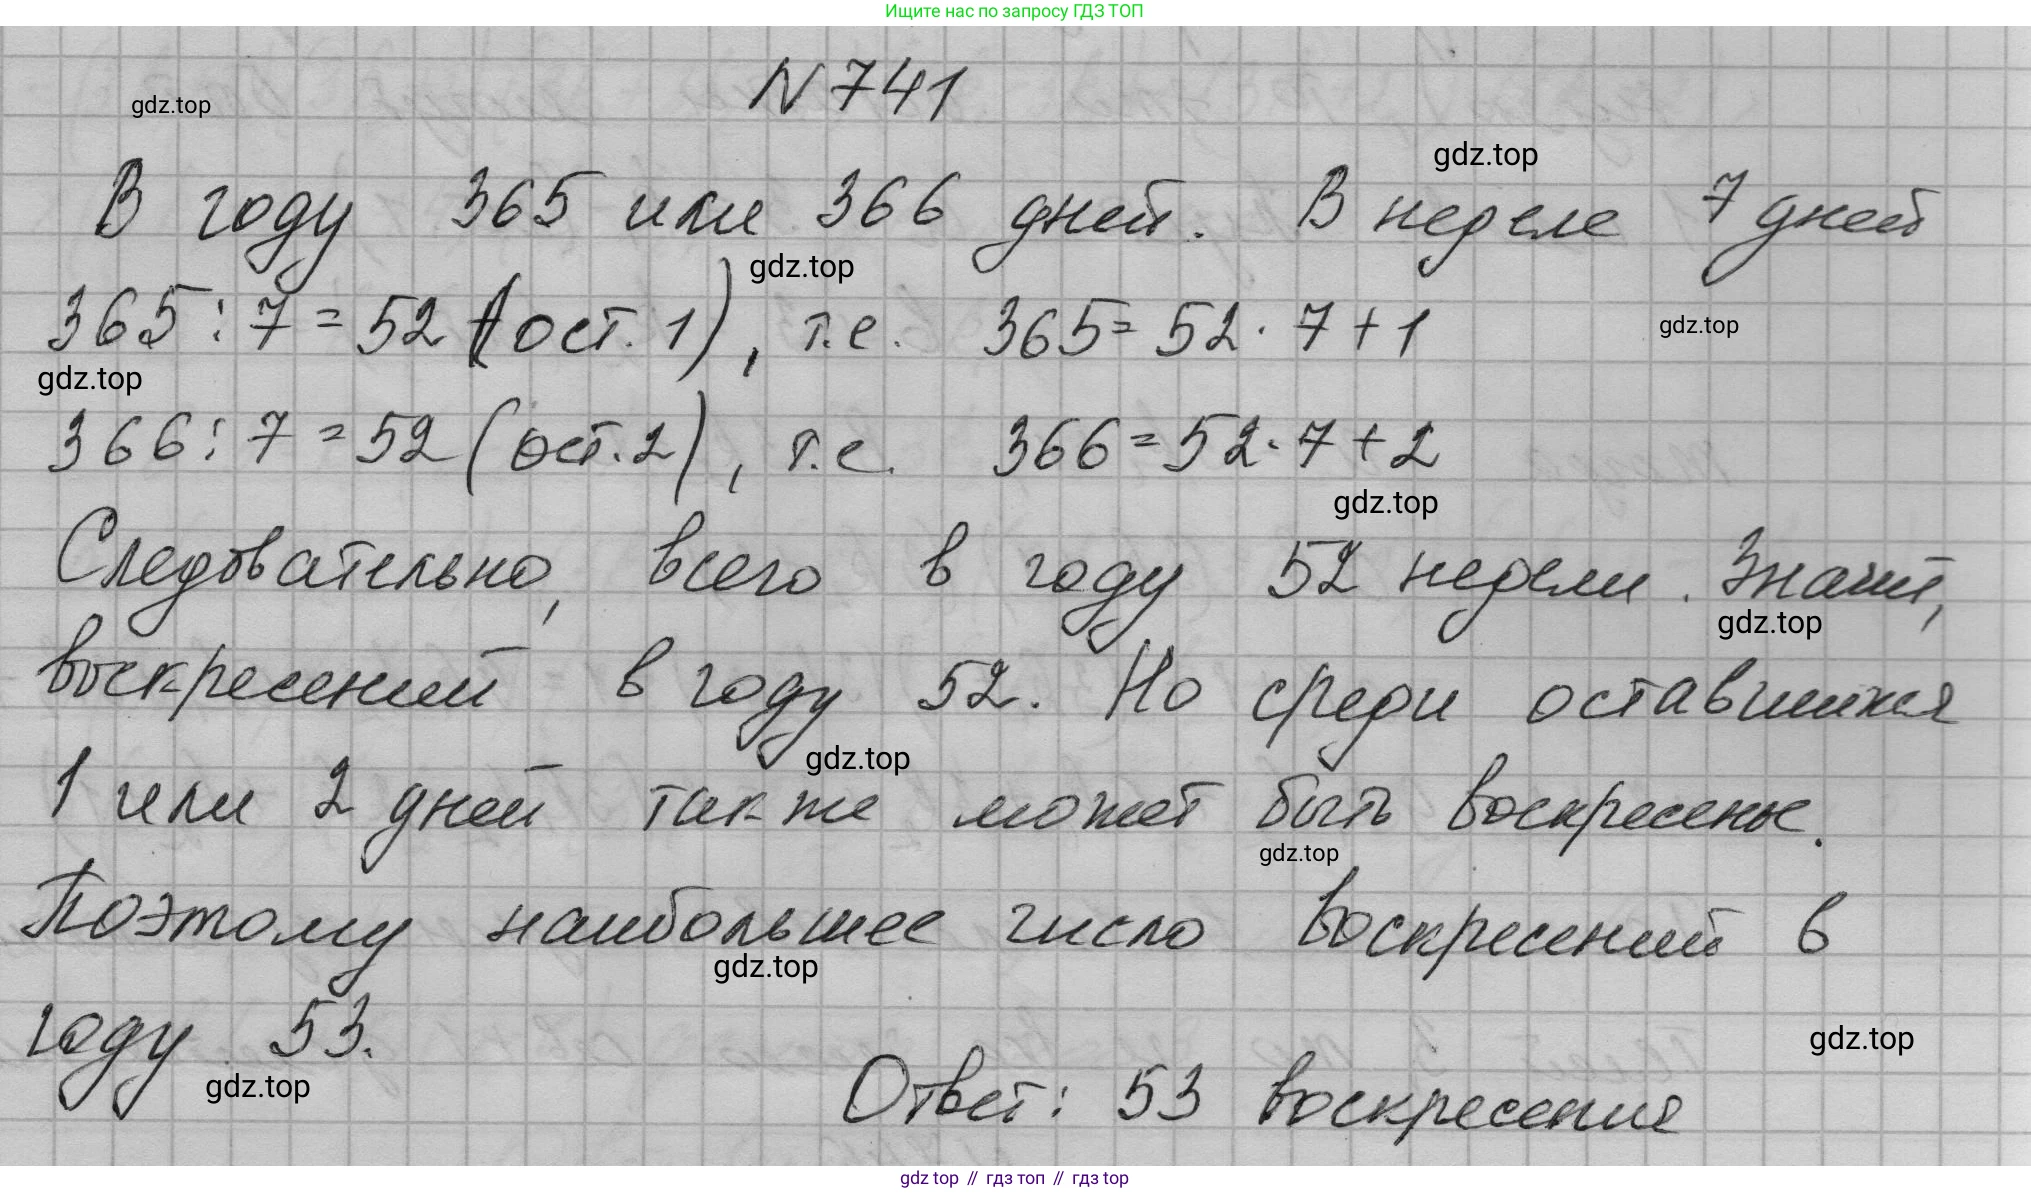 Ищите нас по запросу ГДЗ ТОП
N 741
gdz.top
gdz.top
В году 365 или 366 дней. В неделе 7 дней
gdz.top
365 : 7 = 52 (ост. 1), т.е. 365 = 52 · 7 + 1
gdz.top
gdz.top
366 : 7 = 52 (ост. 2), т.е. 366 = 52 · 7 + 2
gdz.top
Следовательно, всего в году 52 недели. Значит,
gdz.top
воскресений в году 52. Но среди оставшихся
gdz.top
1 или 2 дней также может быть воскресенье.
gdz.top
Поэтому наибольшее число воскресений в
gdz.top
году 53.
gdz.top
gdz.top
Ответ: 53 воскресения
gdz top // гдз топ // гдз top